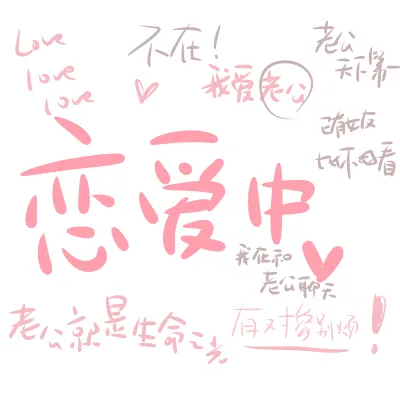 Love
love
love
不在！
我爱老公
老公
天下第一
已有女友
恋爱中
我在和
老公聊天
老公就是生命之光
有对象别烦！